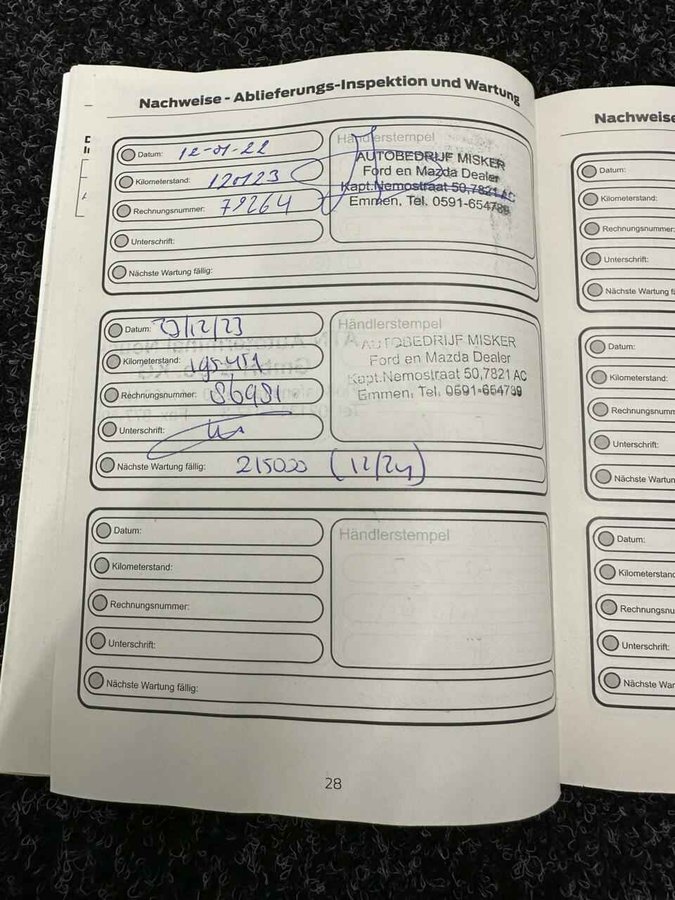 Nachweise - Ablieferungs-Inspektion und Wartung
Datum: 12-01-22
Kilometerstand: 120123
Rechnungsnummer: 79264
Unterschrift:
Nächste Wartung fällig:
Händlerstempel
AUTOBEDRIJF MISKER
Ford en Mazda Dealer
Kapt.Nemostraat 50,7821 AC
Emmen, Tel. 0591-654789
Datum: /12/23
Kilometerstand:
Rechnungsnummer: 86981
Unterschrift:
Nächste Wartung fällig: 215000 (12/24)
Händlerstempel
AUTOBEDRIJF MISKER
Ford en Mazda Dealer
Kapt.Nemostraat 50,7821 AC
Emmen, Tel. 0591-654789
Datum:
Kilometerstand:
Rechnungsnummer:
Unterschrift:
Nächste Wartung fällig:
Händlerstempel
28
Nachweise
Datum:
Kilometerstand:
Rechnungsnummer:
Unterschrift:
Nächste Wartung
Datum:
Kilometerstand:
Rechnungsnumm
Unterschrift:
Nächste Wartun
Datum:
Kilometerstand
Rechnungsnu
Unterschrift:
Nächste War